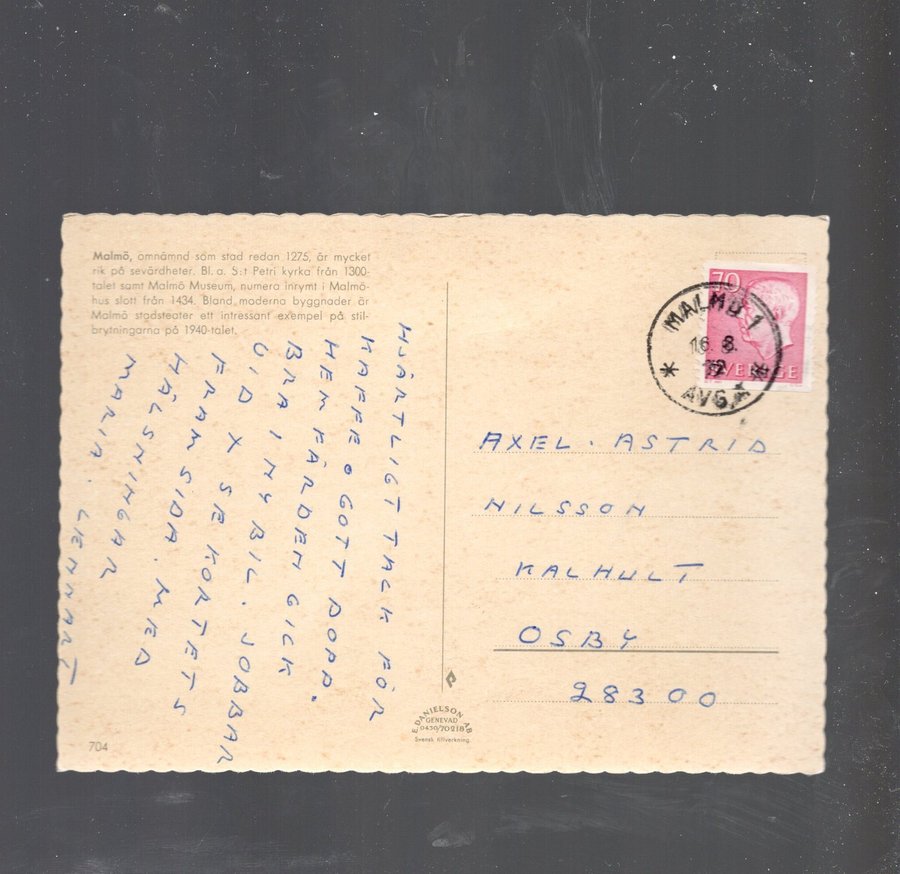 Malmö, omnämnd som stad redan 1275, är mycket
rik på sevärdheter. Bl. a. S:t Petri kyrka från 1300-
talet samt Malmö Museum, numera inrymt i Malmö-
hus slott från 1434. Bland moderna byggnader är
Malmö stadsteater ett intressant exempel på stil-
brytningarna på 1940-talet.
HJÄRTLIGT TACK FÖR
KAFFE O GOTT DOPP.
HEMFÄRDEN GICK
BRA I NY BIL. JOBBAR
VID X SE KORTETS
FRAMSIDA. MED
HÄLSNINGAR
MARIA. LENNART
704
E. DANIELSON AB
GENEVAD
0430/70218
Svensk tillverkning.
70
SVERIGE
MALMÖ 1
16. 8.
72
AVG.
AXEL. ASTRID
NILSSON
KALHULT
OSBY
28300